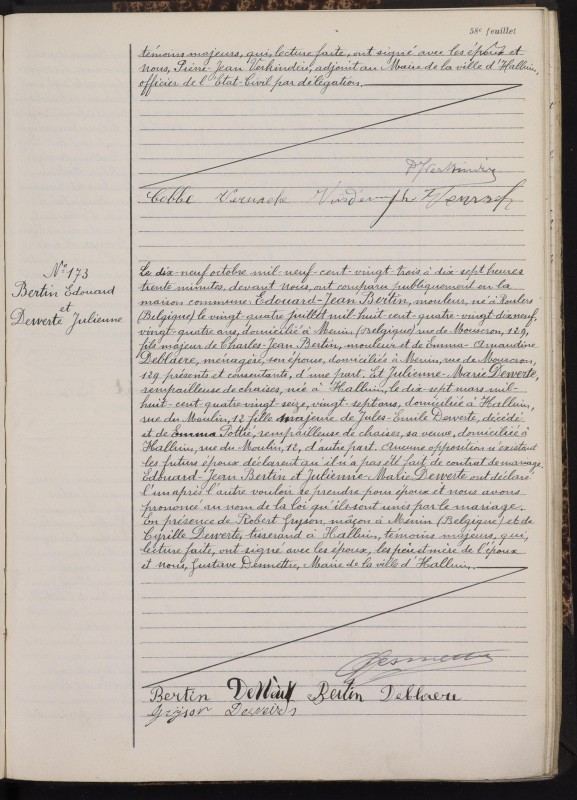 58e feuillet
témoins majeurs, qui, lecture faite, ont signé avec les époux et
nous, Pierre-Jean Verkindère, adjoint au Maire de la ville d'Halluin,
officier de l'Etat-Civil par délégation.
Cobbe
N° 173
Bertin Edouard
et
Dewerte Julienne
Le dix-neuf octobre mil-neuf-cent-vingt trois à dix-sept heures
trente minutes, devant nous, ont comparu publiquement en la
maison commune: Edouard-Jean Bertin, mouleur, né à Roulers
(Belgique) le vingt quatre juillet mil-huit-cent-quatre-vingt dix neuf,
vingt-quatre ans, domicilié à Menin (Belgique) rue de Mouscron, 129,
fils majeur de Charles-Jean Bertin, mouleur et de Emma-Amandine
Deblaere, ménagère, son épouse, domiciliés à Menin, rue de Mouscron,
129, présents et consentants, d'une part. Et Julienne-Marie Dewerte,
rempailleuse de chaises, née à Halluin, le dix-sept mars mil-
huit-cent-quatre vingt-seize, vingt-sept ans, domiciliée à Halluin,
rue du Moulin, 12, fille majeure de Jules-Emile Dewerte, décédé
et de Emma Pottie, rempailleuse de chaises, sa veuve, domiciliée à
Halluin, rue du Moulin, 12, d'autre part. Aucune opposition n'existant
les futurs époux déclarent qu'il n'a pas été fait de contrat de mariage.
Edouard-Jean Bertin et Julienne-Marie Dewerte ont déclaré
l'un après l'autre vouloir se prendre pour époux et nous avons
prononcé au nom de la loi qu'ils sont unis par le mariage.
En présence de Robert Gryson, maçon à Menin (Belgique) et de
Cyrille Dewerte, tisserand à Halluin, témoins majeurs, qui,
lecture faite, ont signé avec les époux, les père et mère de l'époux
et nous, Gustave Desmettre, Maire de la ville d'Halluin.
Desmettre
Bertin Bertin Deblaere
Gryson